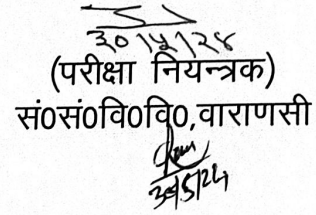 ३०/५/२४
(परीक्षा नियन्त्रक)
सं०सं०वि०वि०,वाराणसी
30/5/24